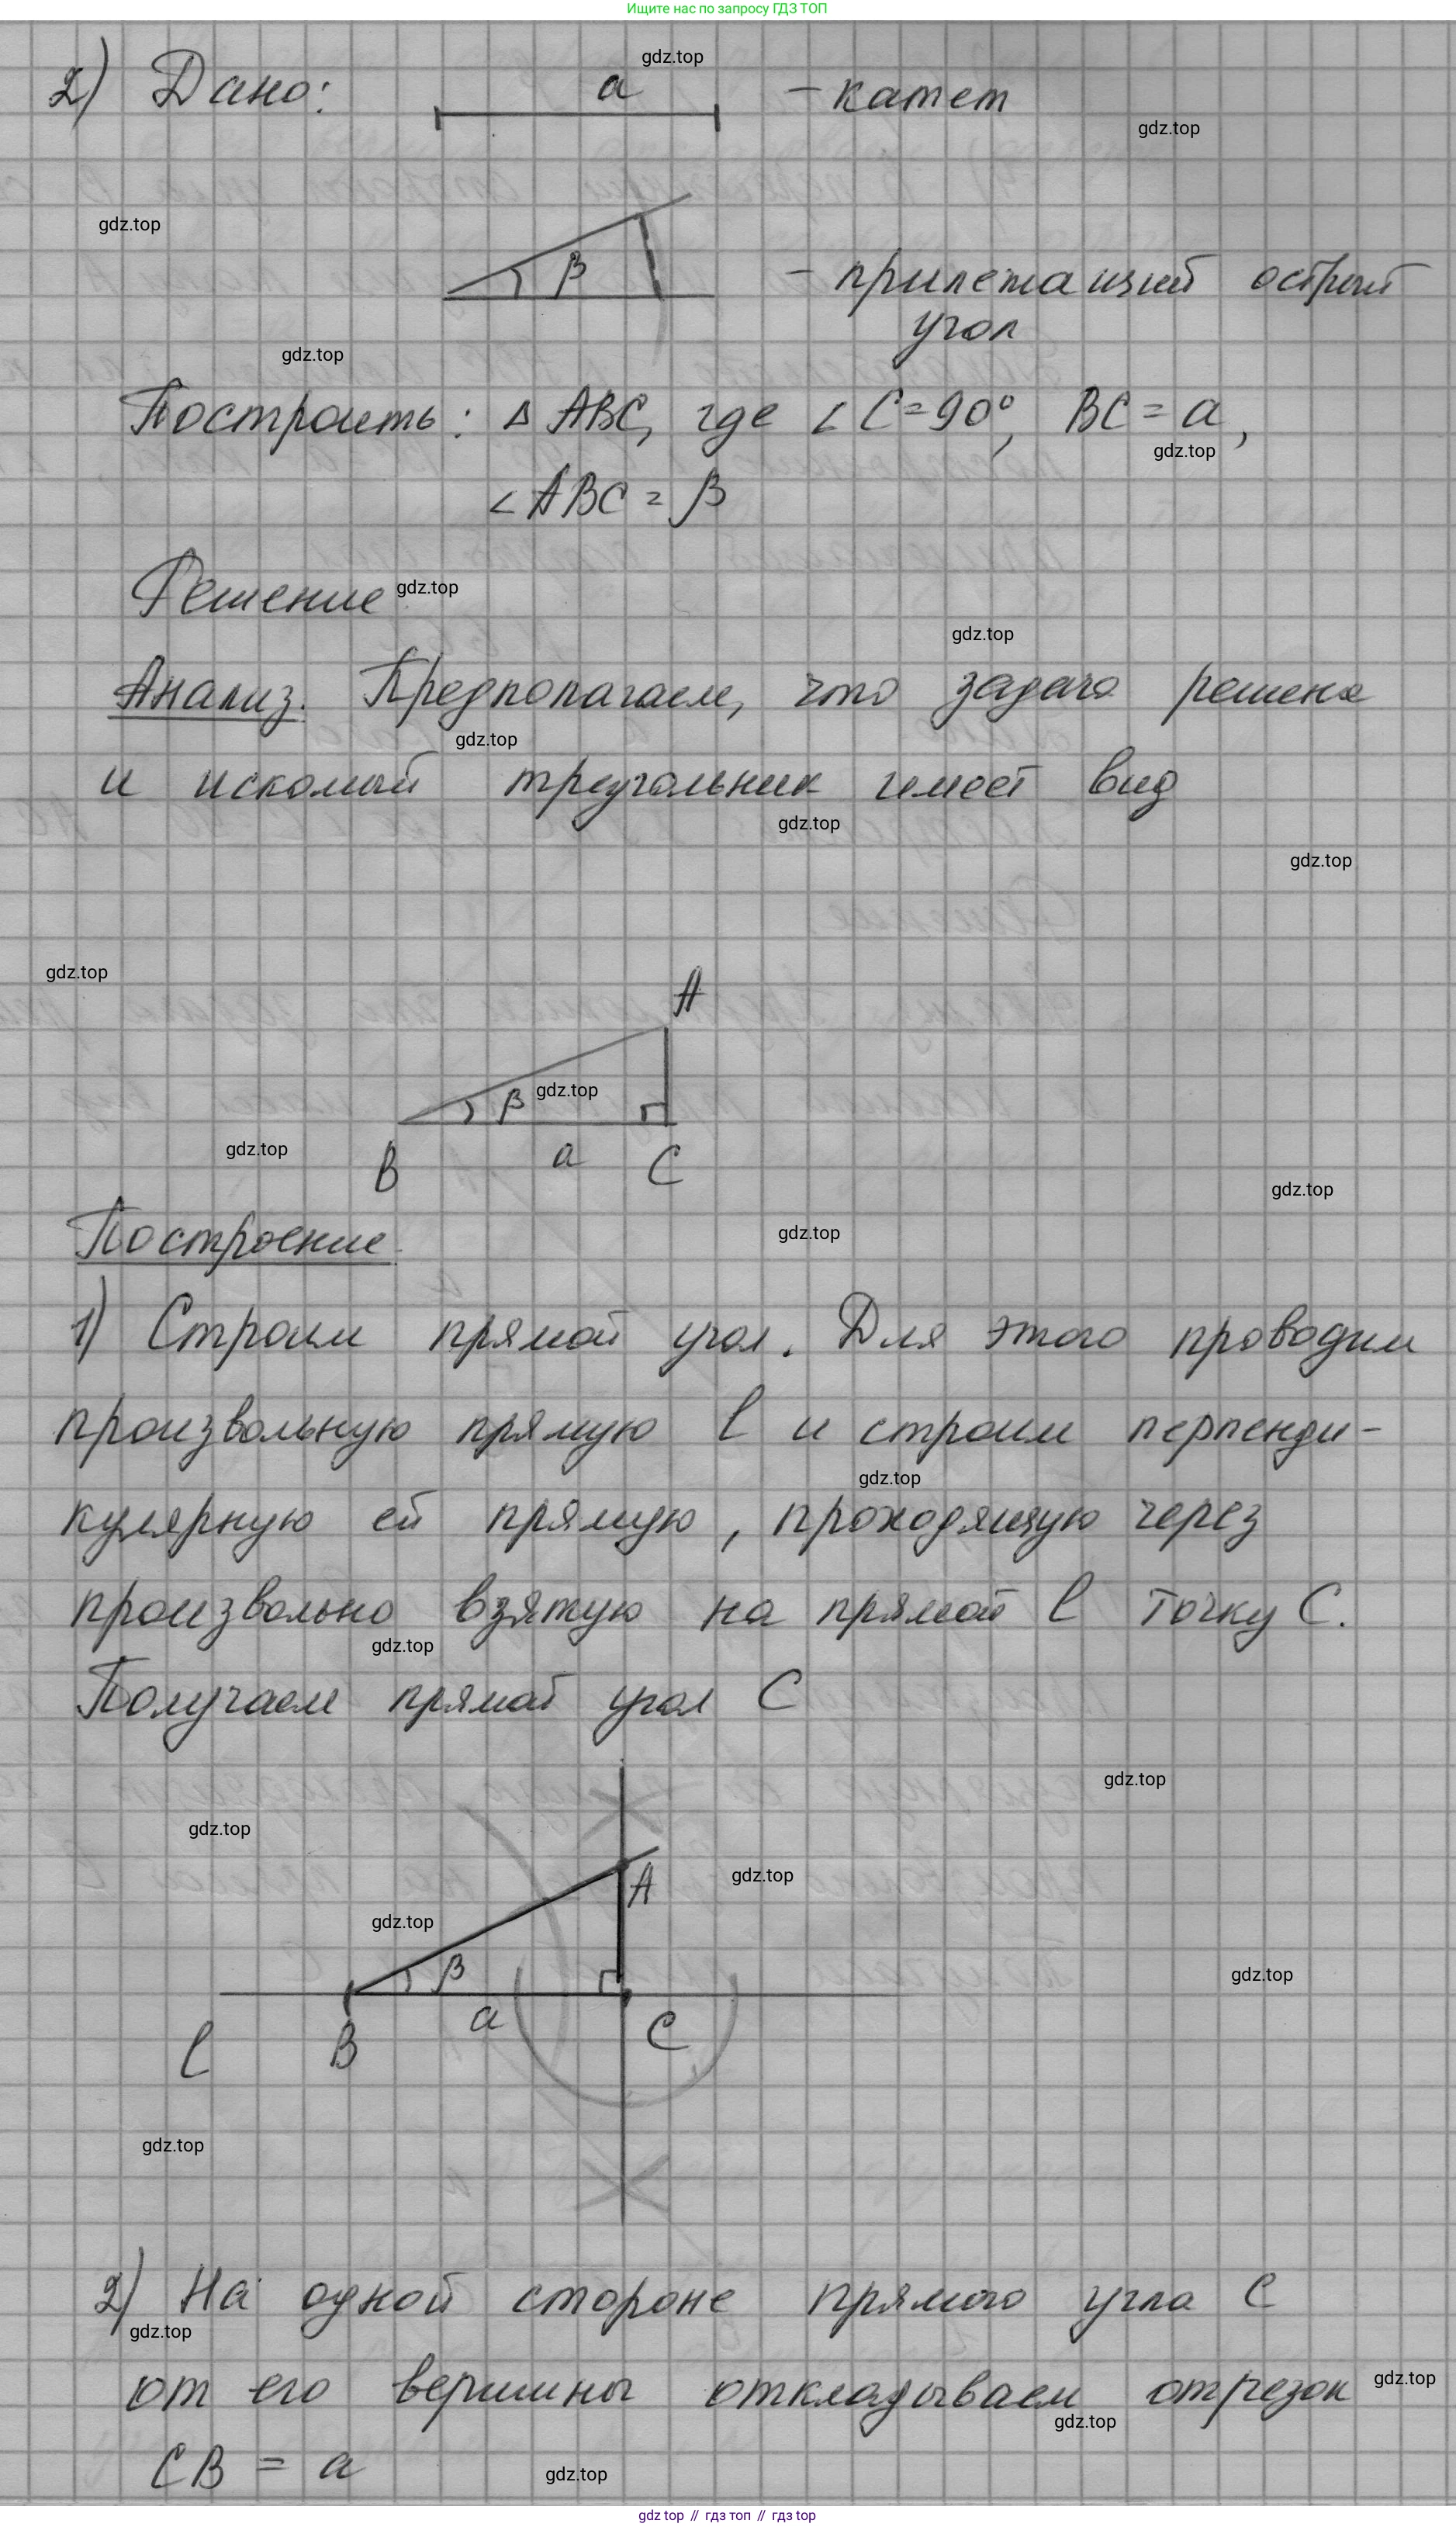 Ищите нас по запросу ГДЗ ТОП
gdz.top
2) Дано: a - катет
gdz.top
gdz.top
β - прилежащий острый
угол
gdz.top
Построить: Δ ABC, где ∠ C = 90°, BC = a,
gdz.top
∠ ABC = β
Решение
gdz.top
gdz.top
Анализ. Предполагаем, что задача решена
gdz.top
и искомый треугольник имеет вид
gdz.top
gdz.top
gdz.top
A
β gdz.top
gdz.top
B a C
gdz.top
Построение
gdz.top
1) Строим прямой угол. Для этого проводим
произвольную прямую l и строим перпенди-
gdz.top
кулярную ей прямую, проходящую через
произвольно взятую на прямой l точку C.
gdz.top
Получаем прямой угол C
gdz.top
gdz.top
A gdz.top
gdz.top
β
gdz.top
a C
l B
gdz.top
2) На одной стороне прямого угла C
gdz.top
от его вершины откладываем отрезок
gdz.top
gdz.top
CB = a
gdz.top
gdz top // гдз топ // гдз top